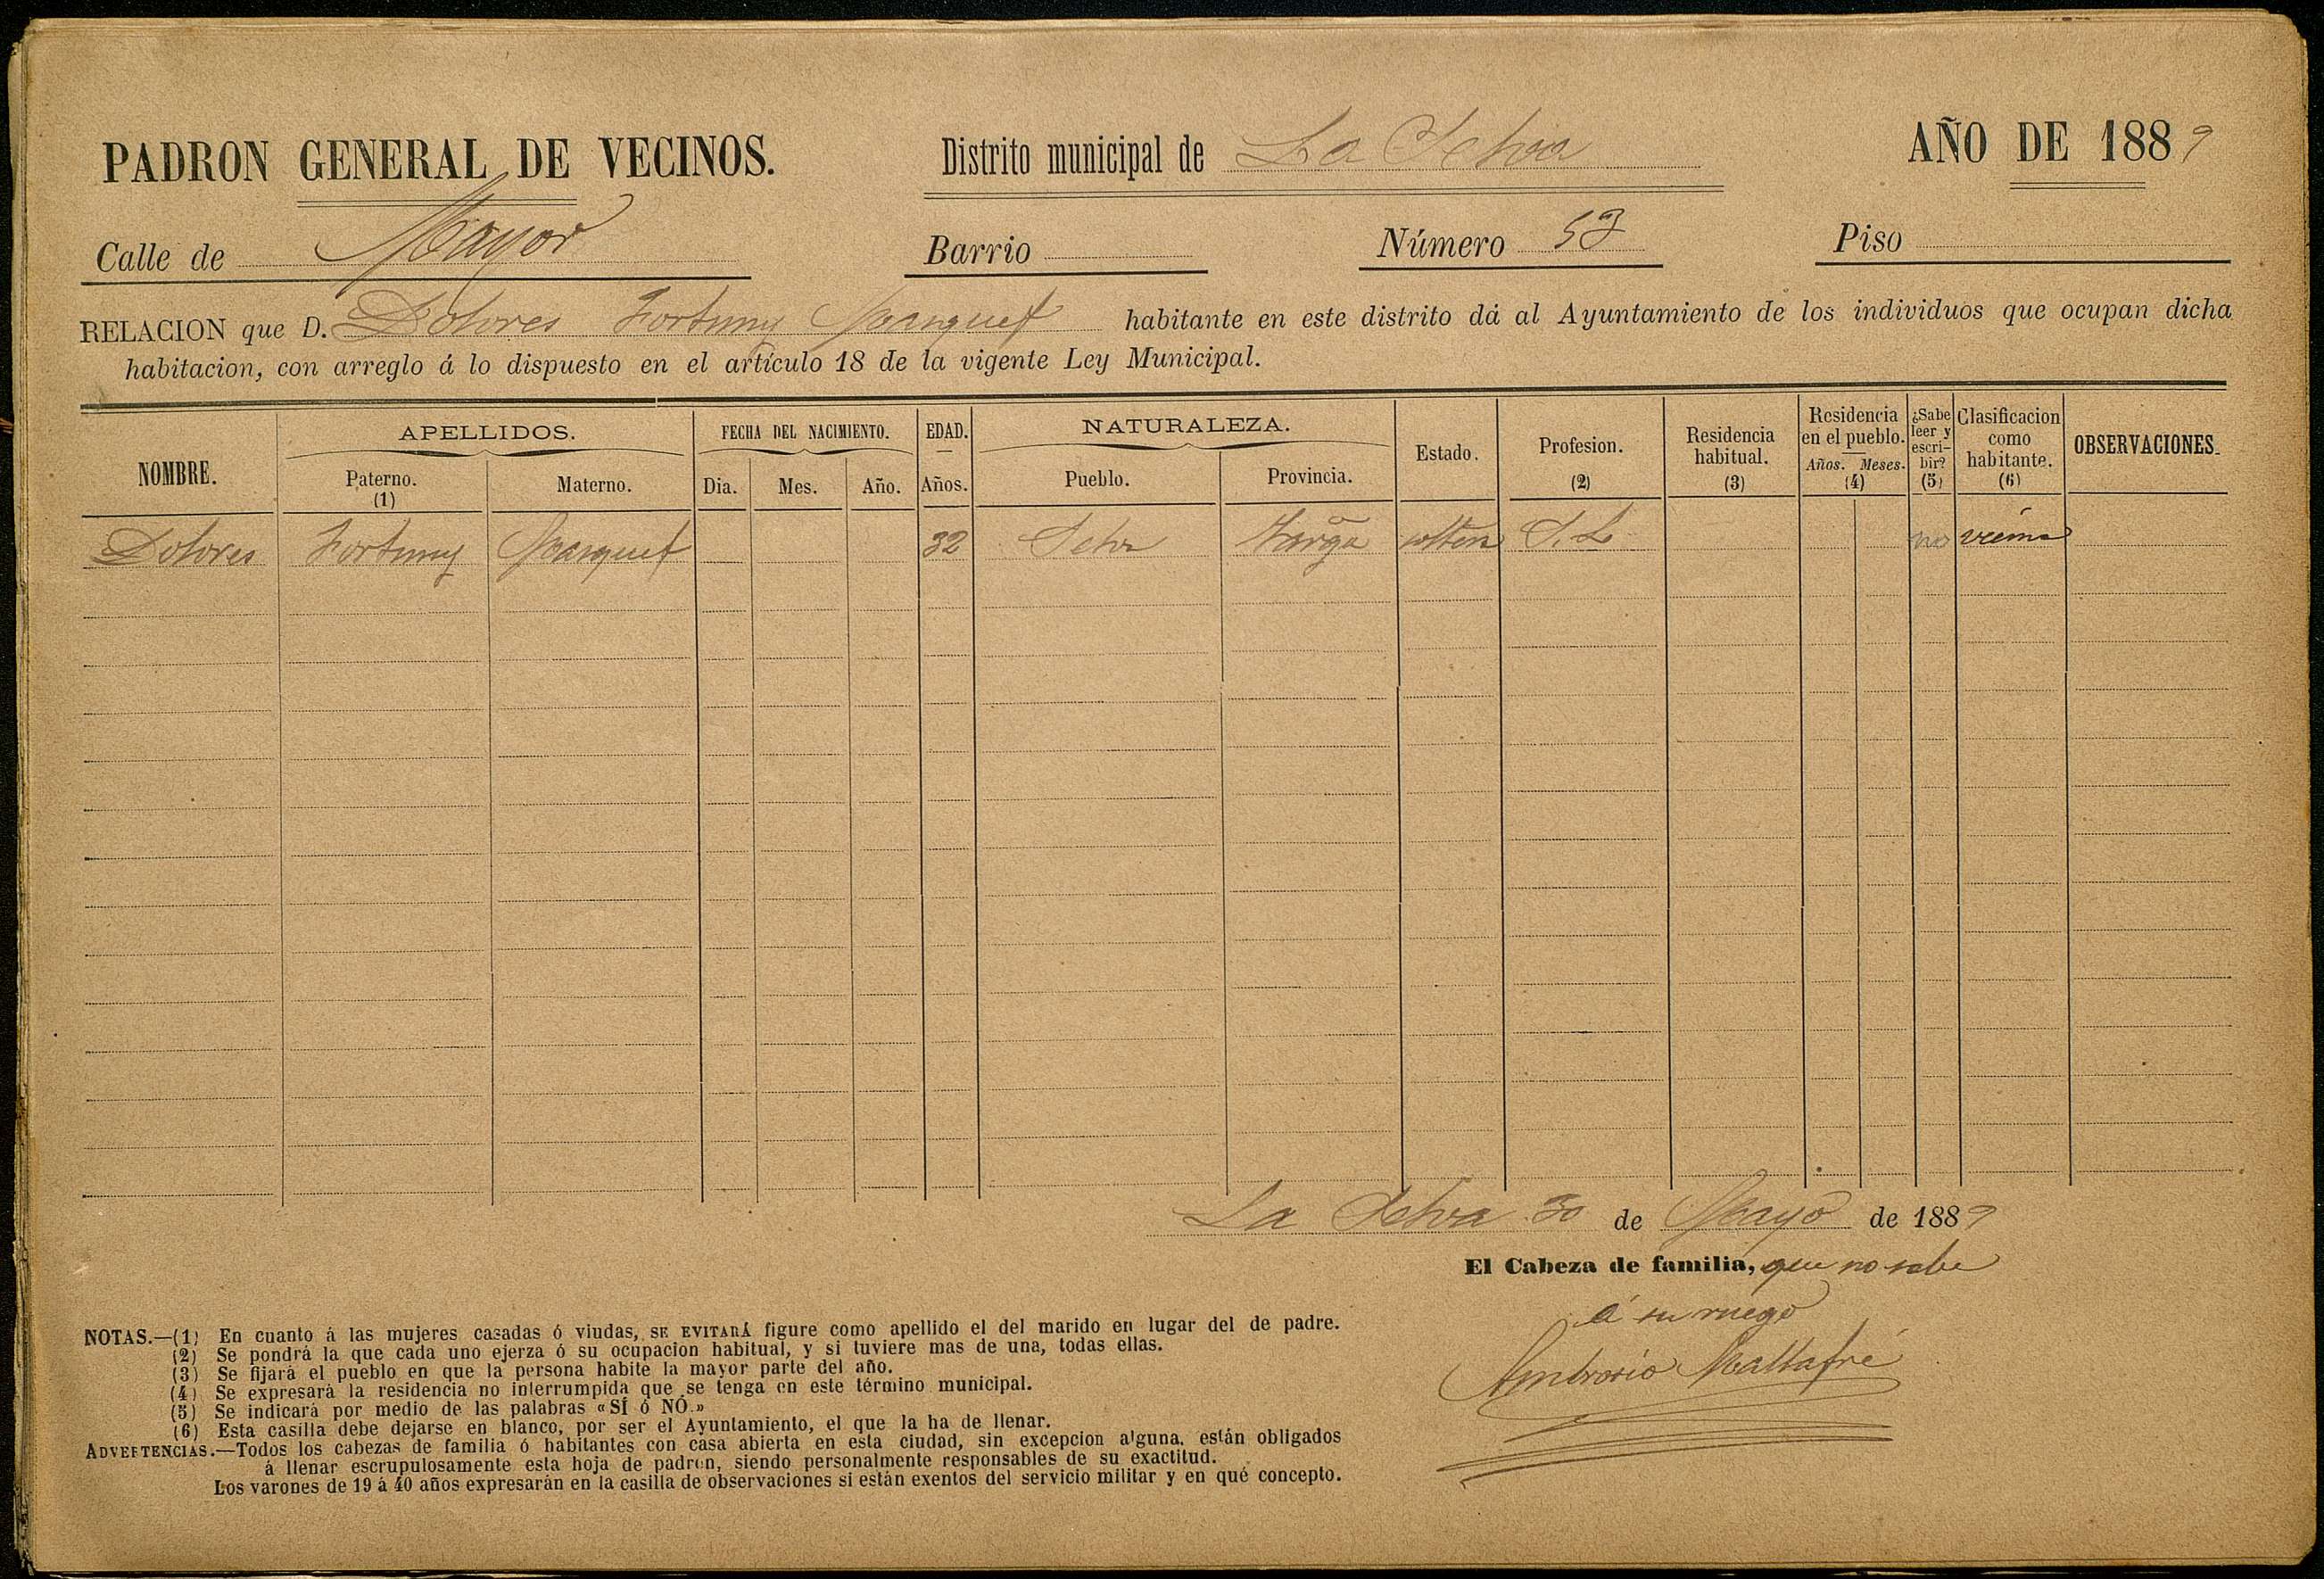 PADRON GENERAL DE VECINOS. Distrito municipal de La Selva AÑO DE 1889
Calle de Mayor Barrio Número 53 Piso
RELACION que D. Dolores Fortuny Marquet habitante en este distrito dá al Ayuntamiento de los individuos que ocupan dicha
habitacion, con arreglo á lo dispuesto en el artículo 18 de la vigente Ley Municipal.
NOMBRE. APELLIDOS. FECHA DEL NACIMIENTO. EDAD. NATURALEZA. Estado. Profesion. (2) Residencia habitual. (3) Residencia en el pueblo. ¿Sabe leer y escribir? (5) Clasificacion como habitante. (6) OBSERVACIONES.
Paterno. (1) Materno. Dia. Mes. Año. Años. Pueblo. Provincia. Años. Meses. (4)
Dolores Fortuny Marquet 32 Selva Tarrga S. L. no vecina
La Selva 30 de Mayo de 1889
El Cabeza de familia, que no sabe
á su ruego
Ambrosio Mallafré
NOTAS.—(1) En cuanto á las mujeres casadas ó viudas, SE EVITARÁ figure como apellido el del marido en lugar del de padre.
(2) Se pondrá la que cada uno ejerza ó su ocupacion habitual, y si tuviere mas de una, todas ellas.
(3) Se fijará el pueblo en que la persona habite la mayor parte del año.
(4) Se expresará la residencia no interrumpida que se tenga en este término municipal.
(5) Se indicará por medio de las palabras «SÍ ó NÓ.»
(6) Esta casilla debe dejarse en blanco, por ser el Ayuntamiento, el que la ha de llenar.
ADVERTENCIAS.—Todos los cabezas de familia ó habitantes con casa abierta en esta ciudad, sin excepcion alguna, están obligados
á llenar escrupulosamente esta hoja de padron, siendo personalmente responsables de su exactitud.
Los varones de 19 á 40 años expresarán en la casilla de observaciones si están exentos del servicio militar y en qué concepto.